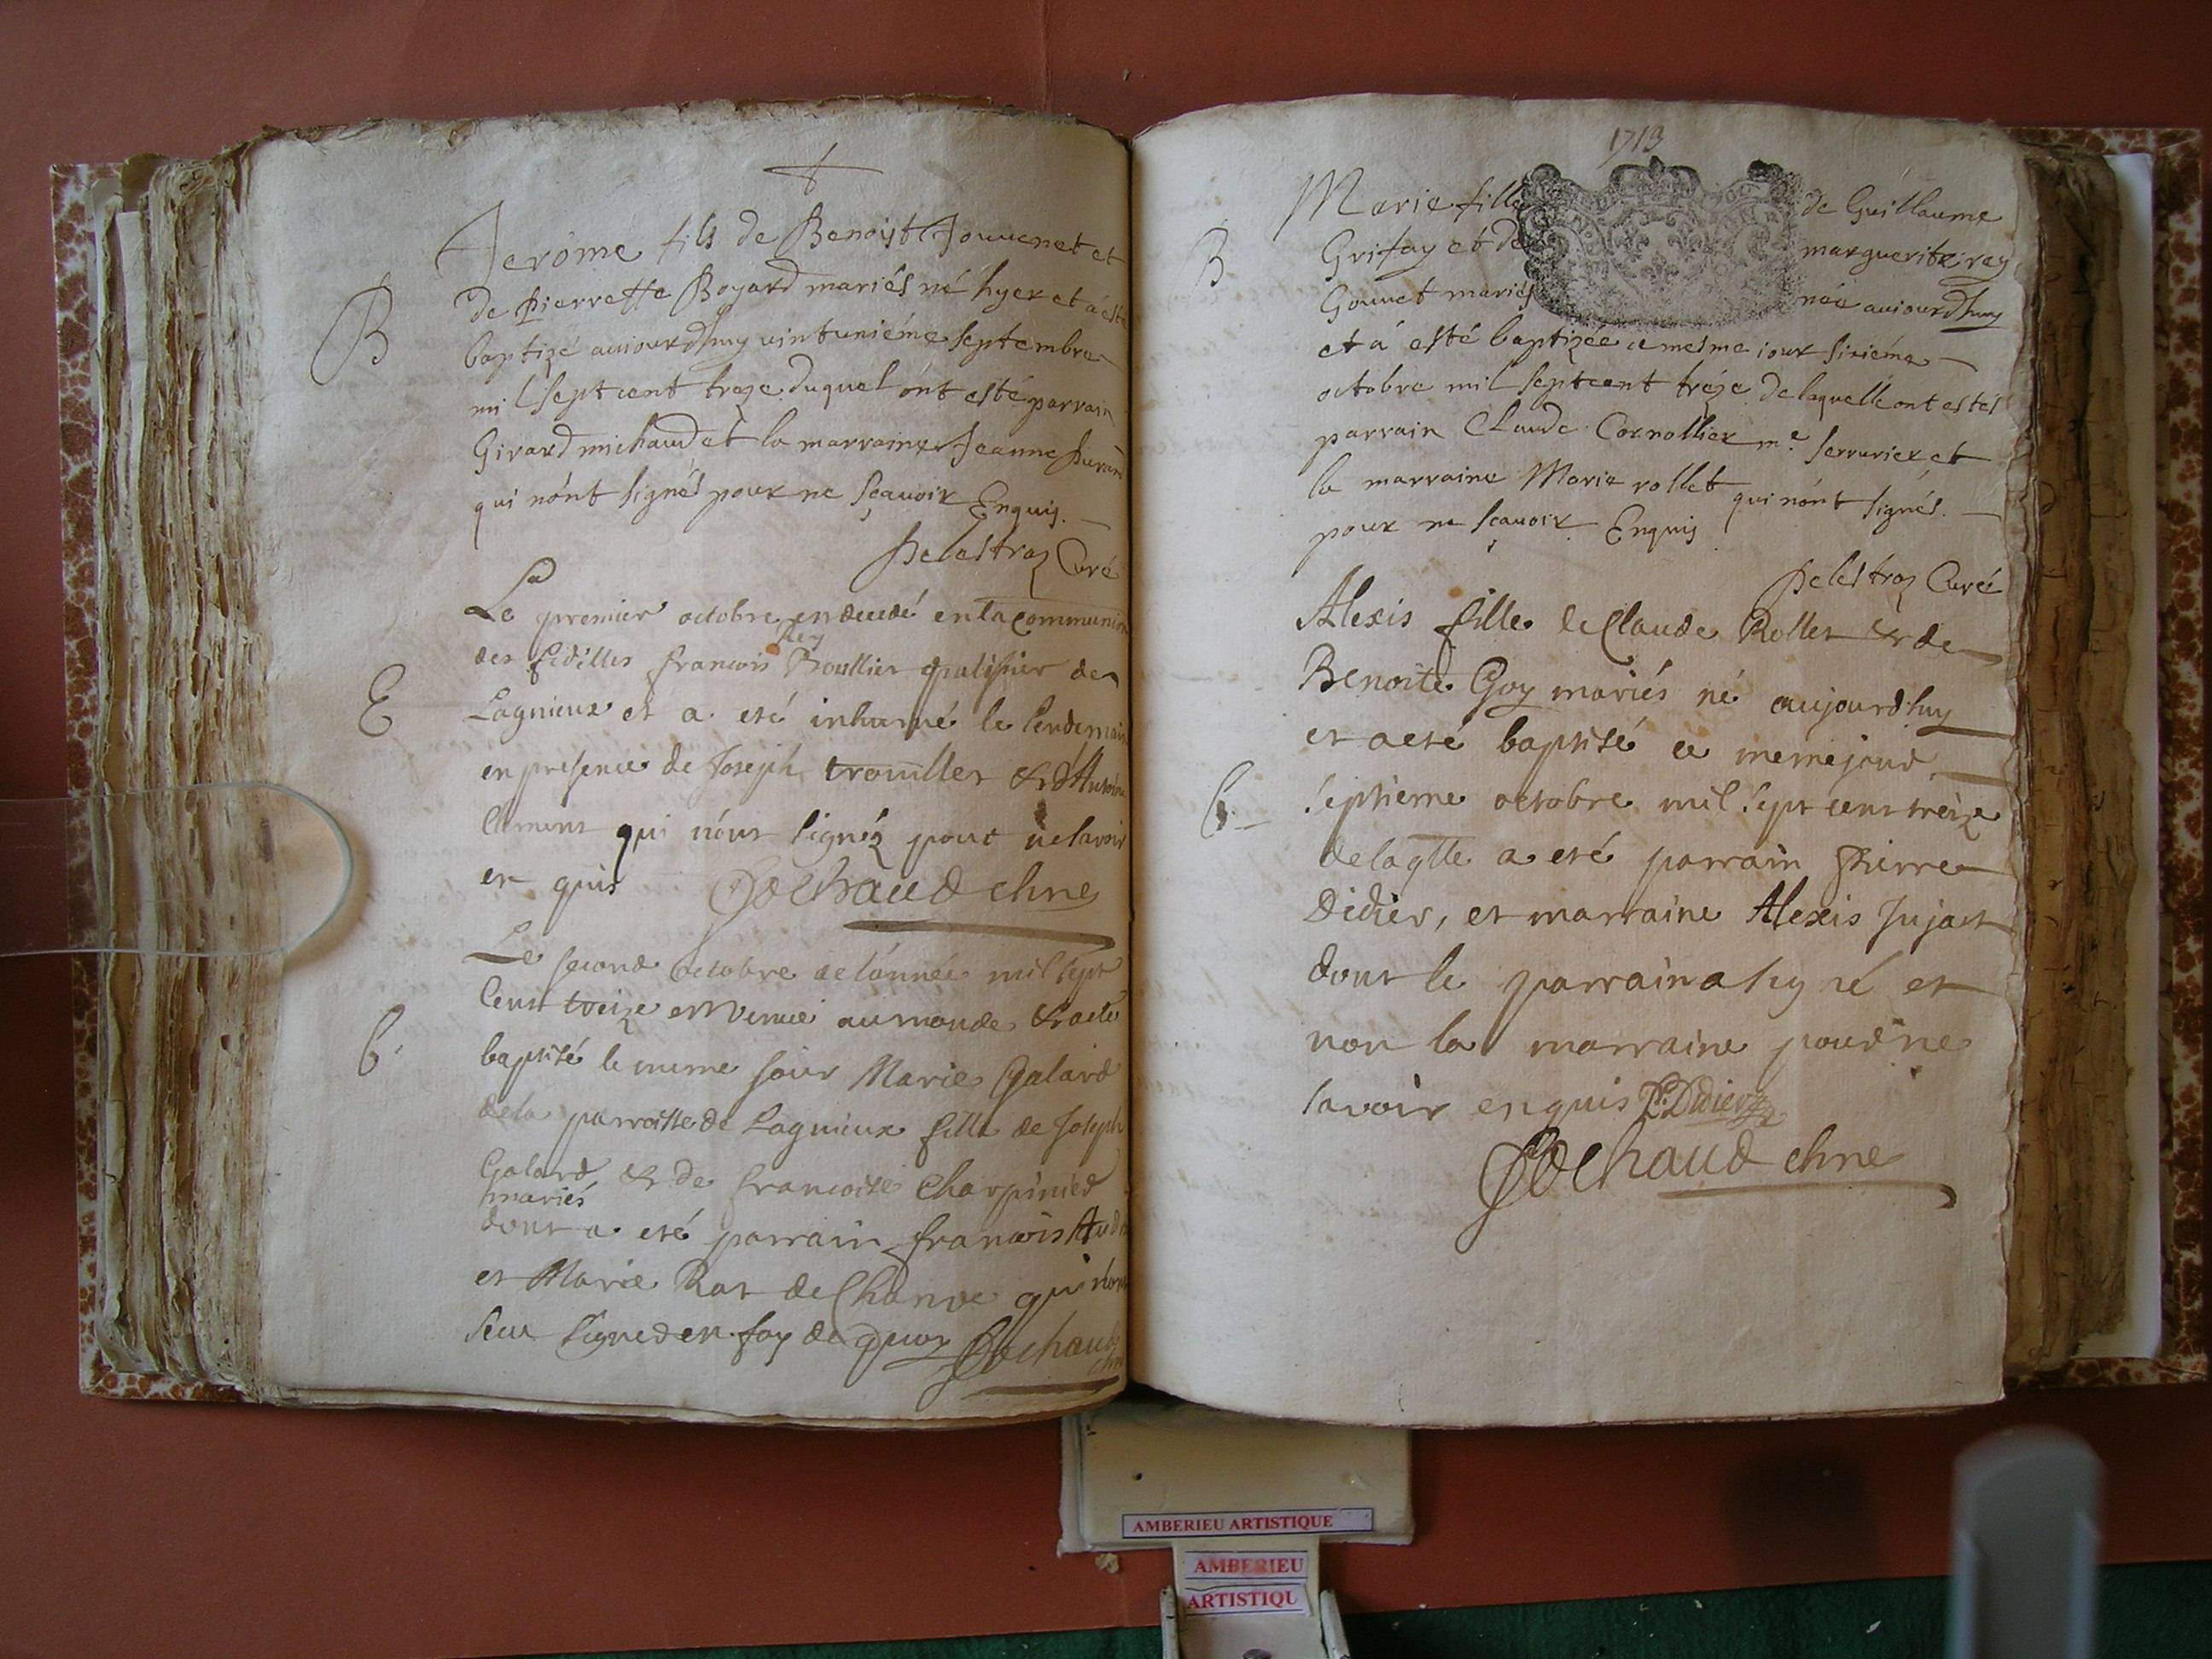 Jerôme fils de Benoist Jouuenet et
B
de pierrette Boyard mariés né hyer et à esté
baptizé auiourdhuy uintunième septembre
mil sept cent treze duquel ont esté parrain
Girard michaud et la marraine Jeanne
qui nónt signés pour ne sçauoir Enquis.
Delestraz Curé
Le premier octobre en decedé en la Communion
Rey
des fidélles francois Boullier de
E
Lagnieux et a eté inhumé le lendemain
en presence de Joseph trouiller & d'Antoine
Clement qui nónt signéz pour ne savoir
en quis Dechaud
Le second octobre de l'année mil sept
Cent treize est venue au monde & a eté
b.
baptisé le meme jour Marie Galard
de la parroisse de Lagnieux fille de Joseph
Galard & de francoise Charpinied
mariés
dont a eté parrain francois
et Marie Rat de Chanve qui nont
sceu signed en foy de quoy Dechaud
1713
Marie fille de Guillaume
B
Grifay et de marguerite rey
Gouuet mariés née auiourdhuy
et à esté baptizée ce mesme iour sixiéme
octobre mil septcent tréze de laquelle ont estés
parrain Claude Cornollier me. serrurier et
la marraine Marie rollet qui nónt signés.
pour ne sçauoir Enquis
Delestraz Curé
Alexis fille de Claude Rollet & de
Benoite Goy mariés né aujourdhuy
et a eté baptisé ce meme jour
b.
septieme octobre mil sept cent treize
de laqlle a eté parrain Pierre
Didier, et marraine Alexis Jujat
dont le parrain a signé et
non la marraine pour ne
savoir enquis P. Didier
Dechaud
AMBERIEU ARTISTIQUE
AMBERIEU
ARTISTIQU